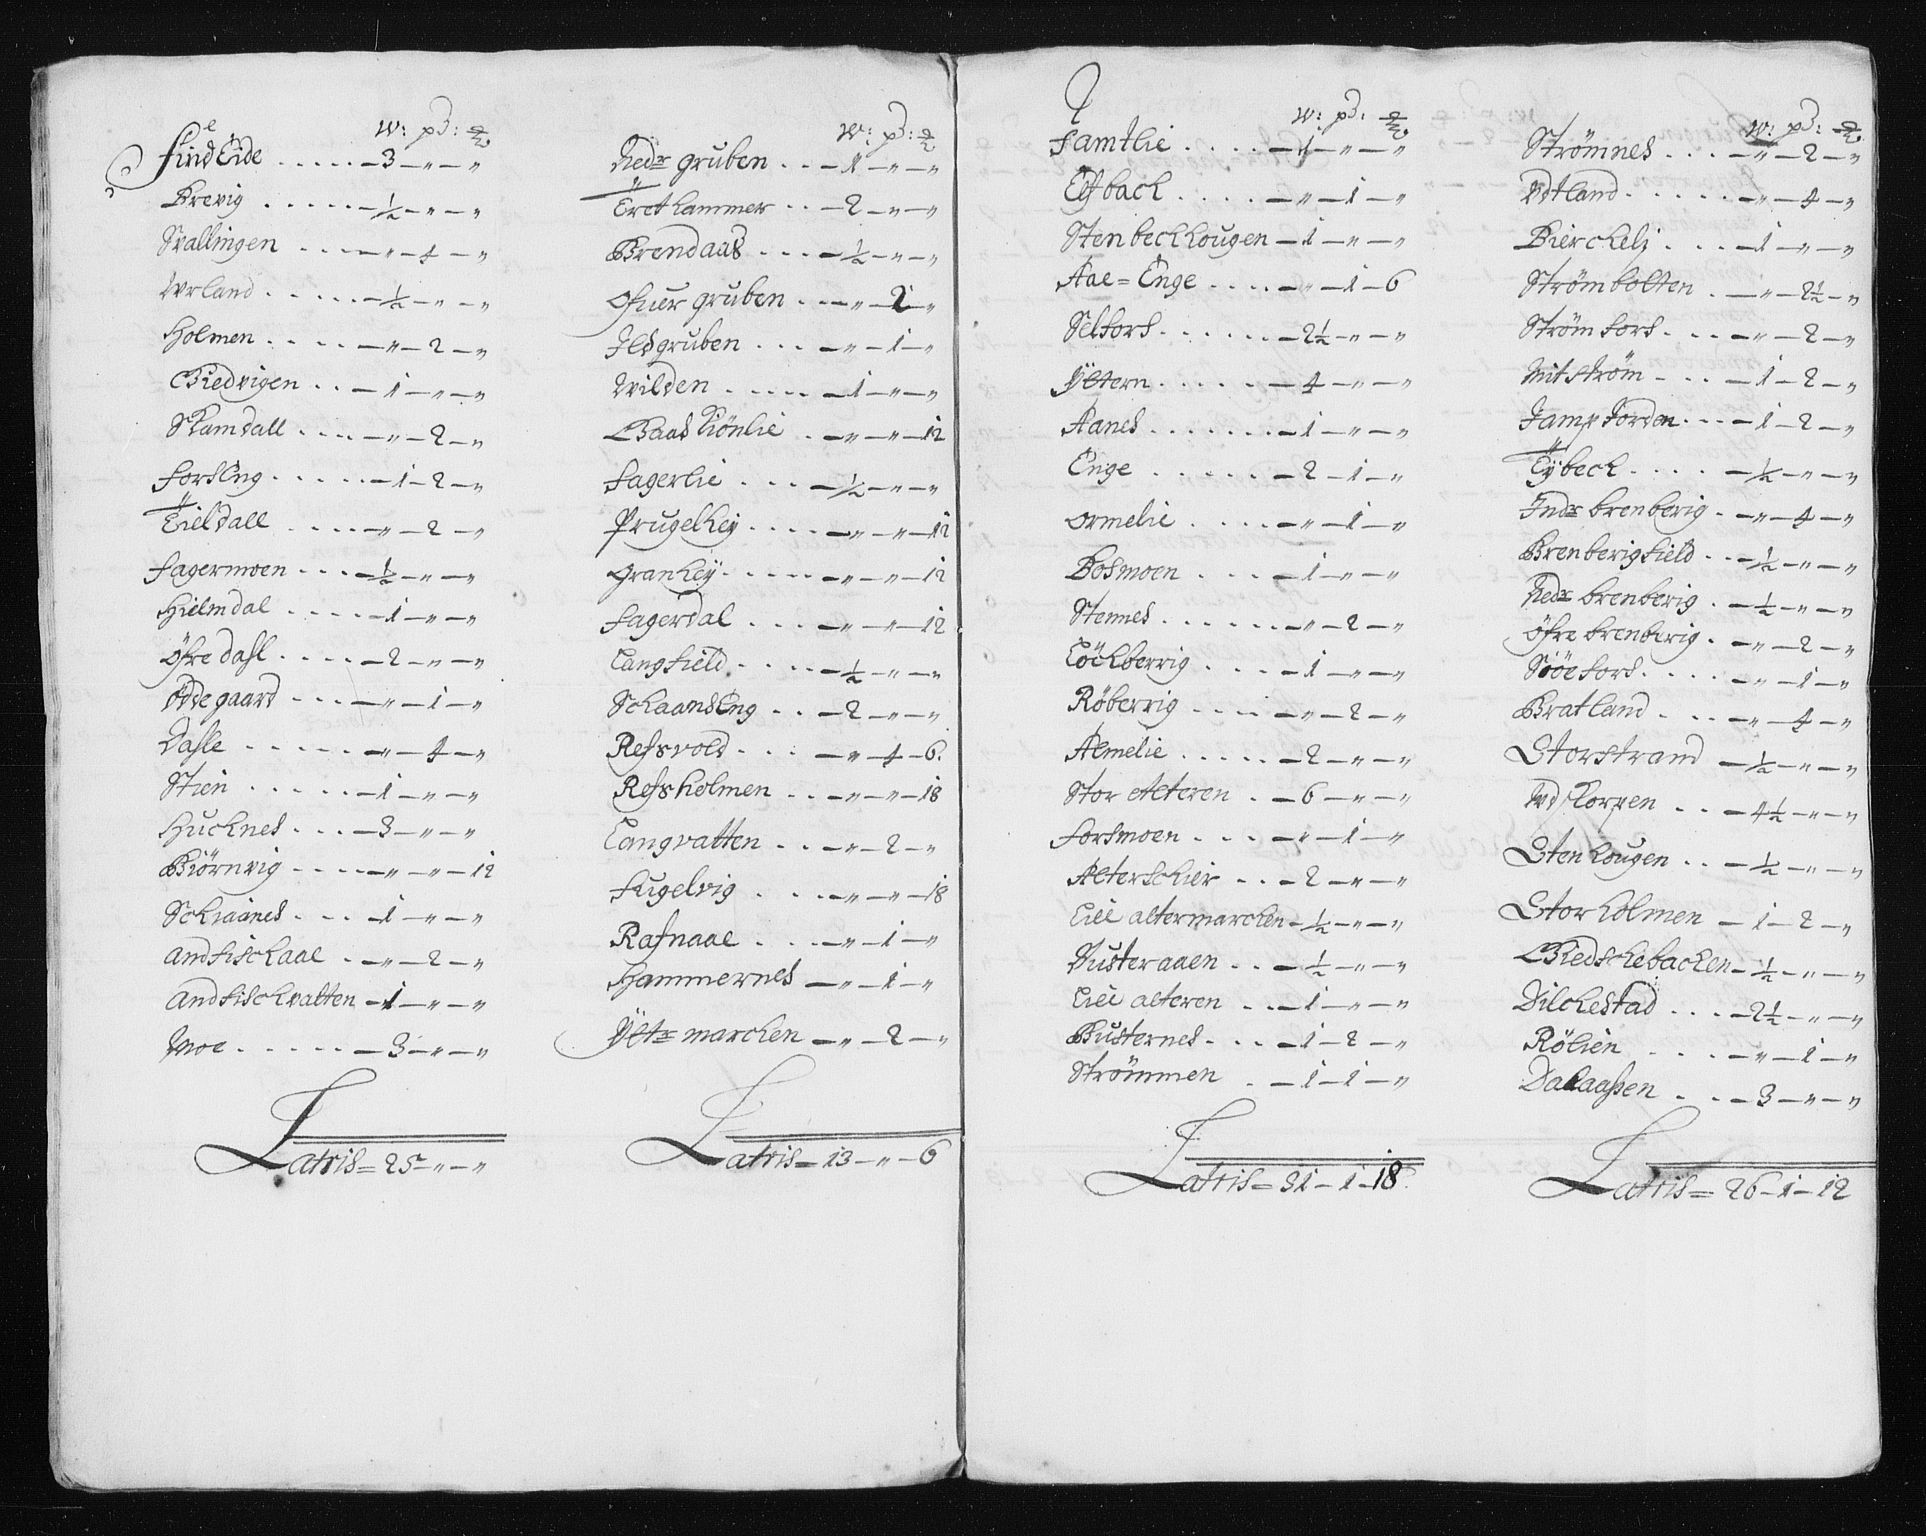 W: p3: ℔
findEide . . . . . — 3 — „ — „
Brevig . . . . . — ½ — „ — „
Svallingen . . . . — „ — 4 — „
Wrland . . . . — ½ — „ — „
Holmen . . . . — „ — 2 — „
Giedvigen . . — 1 — „ — „
Skamdall . . . . — „ — 2 — „
forsEng . . . . . — 1 — 2 — „
Eieldall . . . . — „ — 2 — „
fagermoen . . . — ½ — „ — „
Hielmdal . . . . — 1 — „ — „
Öfre dahl . . . . — 2 — „ — „
Ödde gaard . . . — „ — 1 — „
Dahle . . . . . — „ — 4 — „
Stien . . . . . — 1 — „ — „
Hucknes . . . — 3 — „ — „
Biörnvig . . . . — „ — „ — 12
Schraanes . . . — 1 — „ — „
Andfischaae . — „ — 2 — „
Andfischvatten — 1 — „ — „
Moe . . . . . — 3 — „ — „
Latris = 25 — „ — „
W: p3: ℔
Nedr gruben . . . — 1 — „ — „
Erethammer . . — 2 — „ — „
Brendaas . . . — ½ — „ — „
Ofuer gruben . . — „ — 2 — „
Ildgruben . . . — „ — 1 — „
Wilden . . . . . — 1 — „ — „
Baaskiönlie . — „ — „ — 12
fagerlie . . . — ½ — „ — „
Prugelhey . . . . — „ — „ — 12
Granhey . . . . . — „ — „ — 12
fagerdal . . . . — „ — „ — 12
Langfield . . . . — ½ — „ — „
SchaansEng . . — 2 — „ — „
Refsvold . . . — „ — 4 — 6.
Refsholmen . . — „ — „ — 18
Langvatten . . — „ — 2 — „
fugelvig . . . . — „ — „ — 18
Rafnaae . . . — „ — 1 — „
Hammernes — „ — 1 — „
Yttr marchen — „ — 2 — „
Latris — 13 — „ — 6
W: p3: ℔
famtlie . . . . — 1 — „ — „
Elfbach . . . . — „ — 1 — „
Stenbechhougen — 1 — „ — „
Aae = Enge . . . . — „ — 1 — 6
Selfors . . . . . — 2½ — „ — „
Ÿttern . . . . . — 4 — „ — „
Aanes . . . . . . . — 1 — „ — „
Enge . . . . . . — 2 — 1 — „
Ormelie . . . . — „ — 1 — „
Bosmoen . . . . — 1 — „ — „
Stennes . . . . . . — „ — 2 — „
Löchberrig . . . . — 1 — „ — „
Röberrig . . . . — „ — 2 — „
Almelie . . . . . — 2 — „ — „
Stor Alteren . — 6 — „ — „
forsmoen . . . . — „ — 1 — „
Alterschier . . . — 2 — „ — „
Lille altermarchen — ½ — „ — „
Dusteraaen . . — ½ — „ — „
Lille alteren . . . — 1 — „ — „
Busternes . . . . — 1 — 2 — „
Strömmen . — 1 — 1 — „
Latris = 31 — 1 — 18
W: p3: ℔
Strömnes . . . — „ — 2 — „
Vdtland . . . . . — „ — 4 — „
Bierchelj . . . . — 1 — „ — „
Strömbotten . — „ — 2½ — „
Strömfors . . . . — „ — 2 — „
Mitström . . . . — 1 — 2 — „
Jampforden . . . — 1 — 2 — „
Eÿbech . . . . — ½ — „ — „
Indr brenberig . — „ — 4 — „
Brenberigfield . . — ½ — „ — „
Nedr brenberig . — ½ — „ — „
Öfre brenberig . — „ — 2 — „
Söefors . . . . . — „ — 1 — „
Bratland . . . — „ — 4 — „
Storstrand — ½ — „ — „
Vdskorpen . . . — 4½ — „ — „
Stenhougen . . — ½ — „ — „
Storholmen — 1 — 2 — „
Giedschebachen — ½ — „ — „
Dilchestad . . . — 2½ — „ — „
Rölien . . . . — „ — 1 — „
Dalaasen . . . — 3 — „ — „
Latris = 26 — 1 — 12